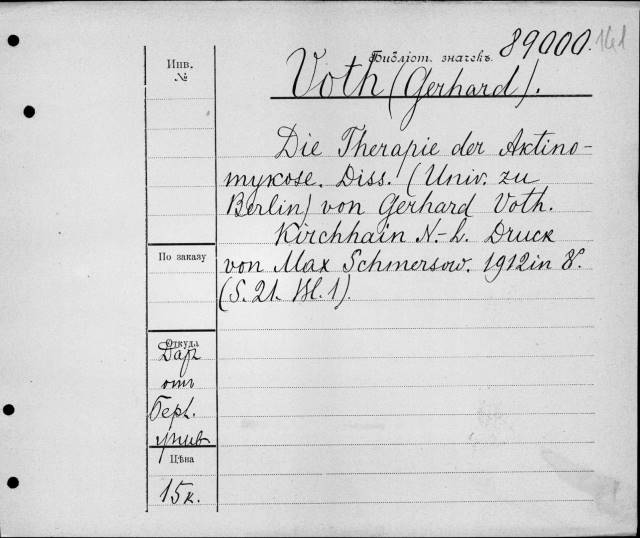 89000.161
Библіот. значекъ.
Voth (Gerhard).
Инв.
№
Die Therapie der Aktino-
mykose. Diss. (Univ. zu
Berlin) von Gerhard Voth.
Kirchhain N.-L. Druck
von Max Schmersow. 1912 in 8°.
(S. 21. Bl. 1).
По заказу
Откуда
Даръ
отъ
Берл.
унив
Цѣна
15к.